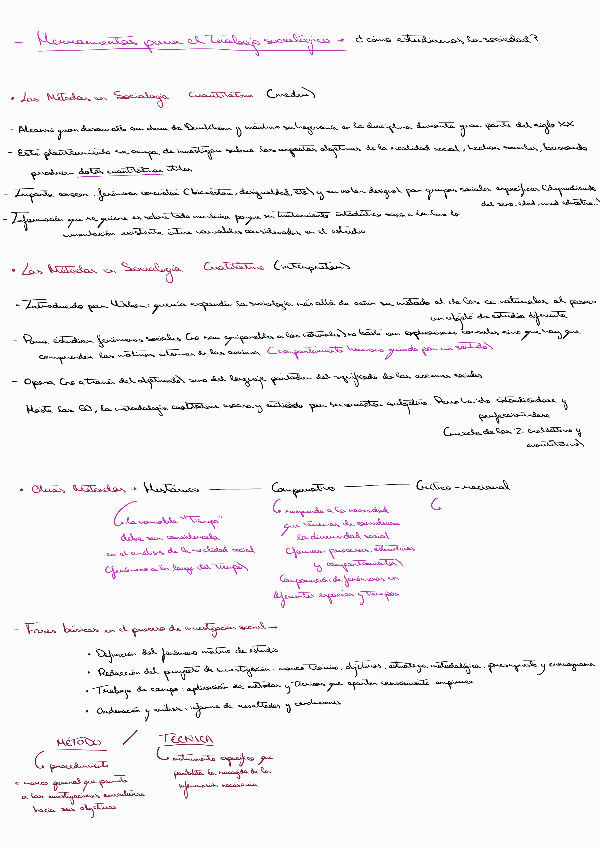 - Herramientas para el trabajo sociológico → ¿cómo estudiamos la sociedad?
• Los Métodos en Sociología Cuantitativo (medir)
- Alcanzó gran desarrollo con obra de Durkheim y máxima en la disciplina durante gran parte del siglo XX
- Este planteamiento se ocupa de investigar sobre los aspectos objetivos de la realidad social, hechos sociales, buscando
producir datos cuantitativos útiles
- Importa conocer fenómenos concretos (bienestar, desigualdad, etc) y su valor desigual por grupos sociales específicos (dependiendo
del sexo, edad, nivel educativo..)
- Información que se quiere es sobre todo numérica porque su tratamiento estadístico
existente entre variables consideradas en el estudio
• Los Métodos en Sociología Cualitativo (interpretar)
- Introducido por Weber: quería expandir la sociología más allá de su método al de las cc naturales al poseer
un objeto de estudio diferente
- Para estudiar fenómenos sociales (no son equiparables a los naturales) no basta con explicaciones causales sino que hay que
comprender los motivos internos de las acciones (comportamiento humano guiado por un sentido)
- Opera (no a través del algoritmo) sino del lenguaje portador del significado de las acciones sociales
- Hasta los 60, la metodología cualitativa y criticado por su carácter subjetivo. Pero ha ido extendiéndose y
perfeccionándose
(mezcla de los 2: cualitativo y
cuantitativo)
• Otros Métodos → Histórico — Comparativo — Crítico-racional
la variable "Tiempo"
debe ser considerada
en el análisis de la realidad social
(fenómeno a lo largo del tiempo)
responde a la necesidad
que tenemos de considerar
la diversidad social
(formas, procesos, estructuras
y comportamientos)
Comparación de fenómenos en
diferentes espacios y tiempos
- Fases básicas en el proceso de investigación social →
• Definición del fenómeno motivo de estudio
• Redacción del proyecto de investigación: marco teórico, objetivos, estrategia metodológica, presupuesto y cronograma
• Trabajo de campo: aplicación de métodos y técnicas que aportan conocimiento empírico
• Ordenación y análisis: informe de resultados y conclusiones
MÉTODO / TÉCNICA
procedimiento
o marco general que permite
a las investigaciones encaminarse
hacia sus objetivos
instrumento específico que
posibilita la recogida de la
información necesaria